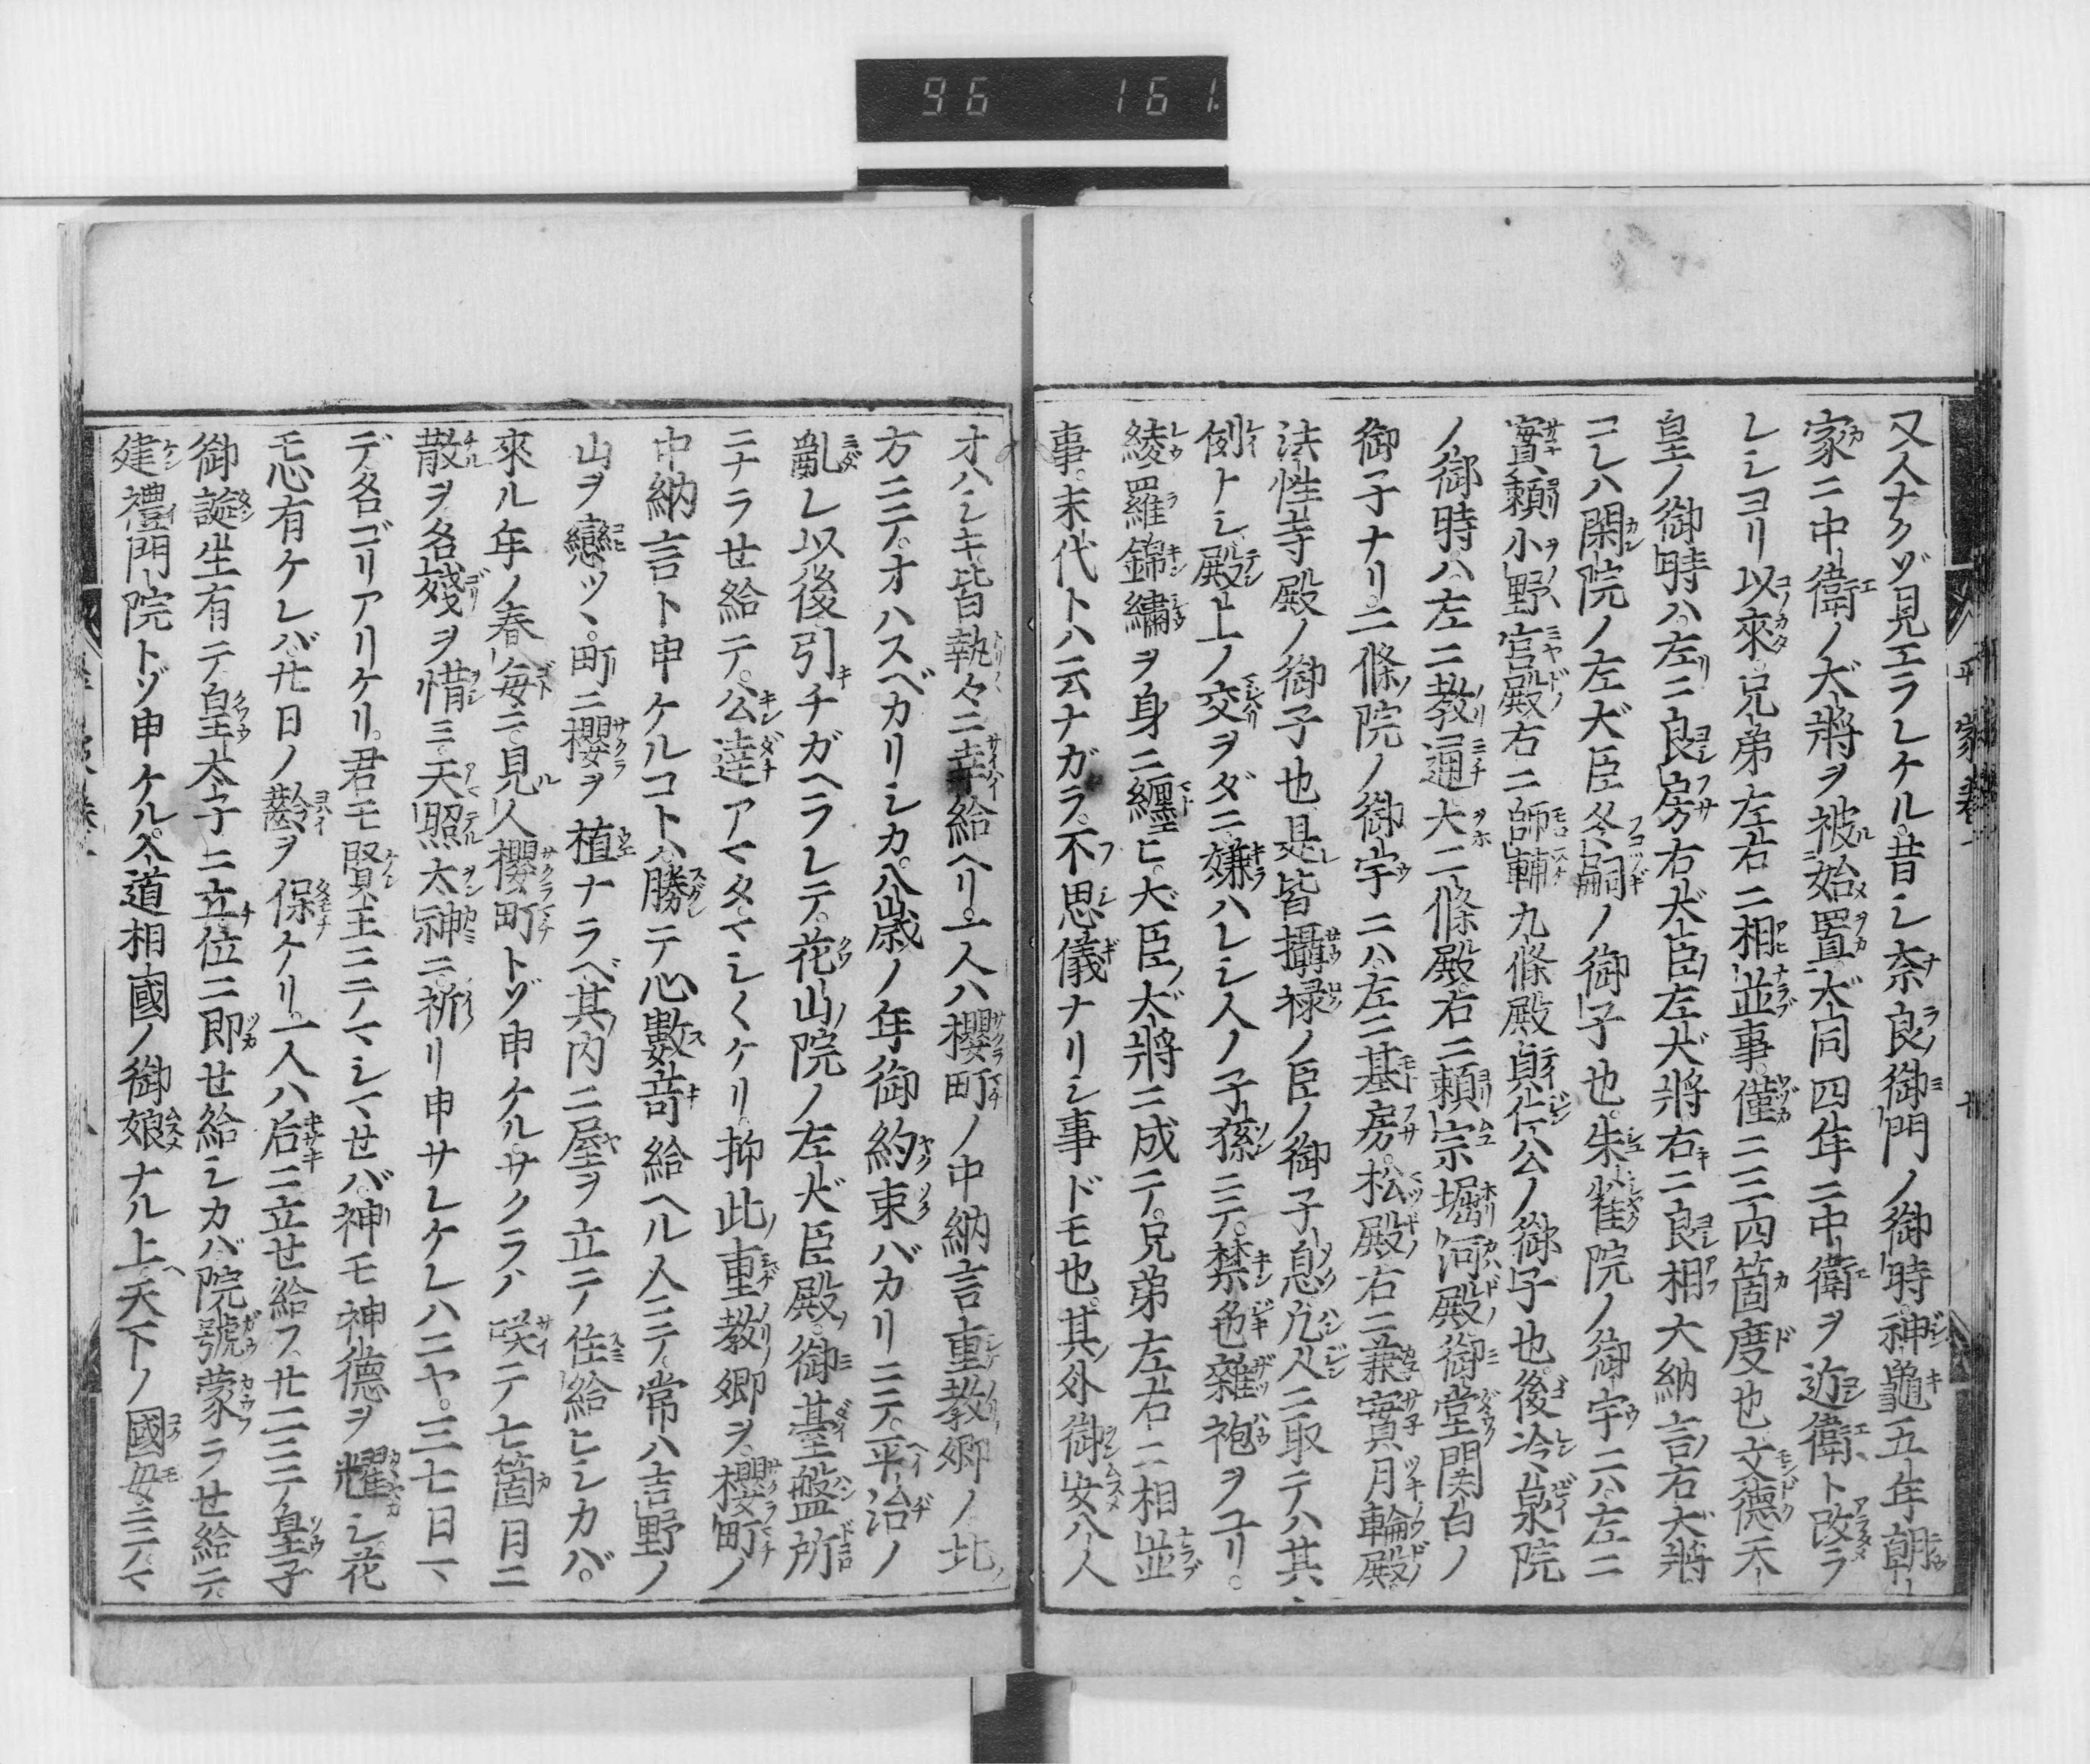 96 161
平家巻一
又人ナクゾ見エラレケル。昔シ奈良御門ノ御時。神龜五年朝
家ニ中衛ノ大將ヲ被始置。大同四年ニ中衛ヲ近衛ト改ラ
レシヨリ以來。兄弟左右ニ相並事。僅ニ三四箇度也。文德天
皇ノ御時ハ。左ニ良房右大臣左大將。右ニ良相大納言右大將。
コレハ閑院ノ左大臣冬嗣ノ御子也。朱雀院ノ御宇ニハ。左ニ
實賴小野宮殿。右ニ師輔九條殿。貞仁公ノ御子也。後冷泉院
ノ御時ハ。左ニ教通大二條殿。右ニ賴宗堀河殿。御堂関白ノ
御子ナリ。二條院ノ御宇ニハ。左ニ基房松殿。右ニ兼實月輪殿。
法性寺殿ノ御子也。是皆攝禄ノ臣ノ御子息。凡人ニ取テハ其
例トシ。殿上ノ交ヲダニ嫌ハレシ人ノ子孫ニテ。禁色雜袍ヲユリ。
綾羅錦繡ヲ身ニ纏ヒ。大臣ノ大將ニ成テ。兄弟左右ニ相並
事。末代トハ云ナガラ。不思儀ナリシ事ドモ也。其外御女八人
オハシキ。皆執々ニ幸給ヘリ。一人ハ櫻町ノ中納言重教卿ノ北ノ
方ニテ。オハスベカリシカ。八歲ノ年御約束バカリニテ。平治ノ
亂レ以後。引チガヘラレテ。花山ノ院ノ左大臣殿ノ御臺盤所
ニナラせ給テ。公達アマタマシくケリ。抑此重教卿ヲ。櫻町ノ
中納言ト申ケルコトハ。勝テ心數奇給ヘル人ニテ。常ハ吉野ノ
山ヲ戀ツヽ。町ニ櫻ヲ植ナラベ。其内ニ屋ヲ立テノ住給ヒシカバ。
來ル年ノ春毎ニ。見ル人櫻町トゾ申ケル。サクラハ咲テ七箇月ニ
散ヲ。名殘ヲ惜ミ。天照太神ニ。祈リ申サレケレハニヤ。三七日マ
デ名ゴリアリケリ。君モ賢王ニテマシマせバ。神モ神德ヲ耀シ。花
モ心有ケレバ。廿日ノ齡ヲ保ケリ。一人ハ后ニ立せ給フ。廿二ニテ皇子
御誕生有テ。皇太子ニ立。位ニ即せ給シカバ。院號蒙ラせ給テ。
建禮門院トゾ申ケル。入道相國ノ御娘ナル上ヘ。天下ノ國母ニテマ